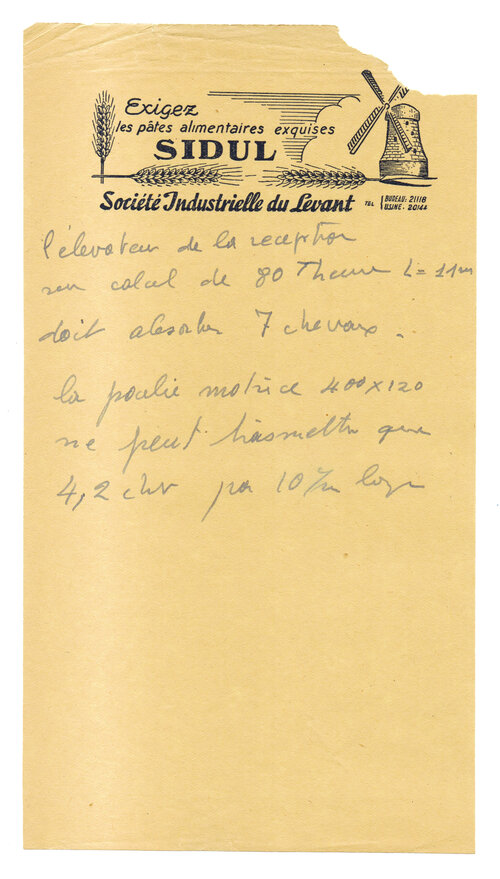 Exigez
les pâtes alimentaires exquises
SIDUL
Société Industrielle du Levant
TEL. BUREAU: 21118
USINE: 20144
l'élevateur de la reception
calcul de 80 T heure L = 11m
doit absorber 7 chevaux.
la poulie motrice 400x120
ne peut trasmettre que
4,2 chv par 10